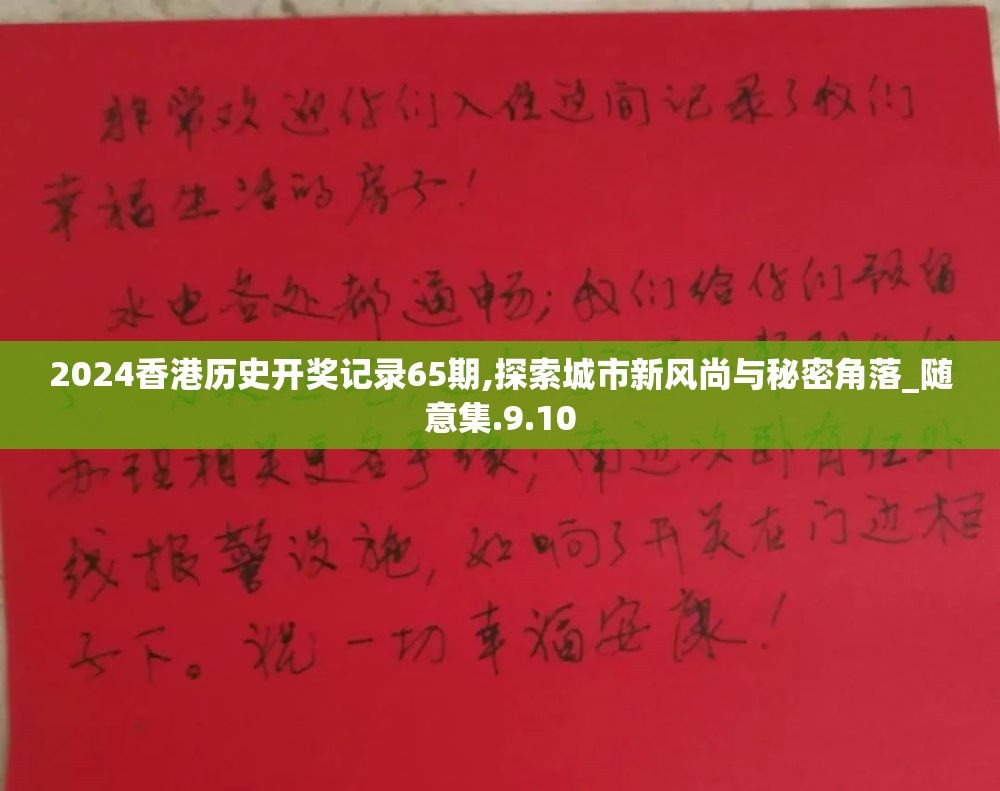 非常欢迎你们入住这间记录了我们
幸福生活的房子！
水电各处都通畅；我们给你们预留
2024香港历史开奖记录65期,探索城市新风尚与秘密角落_随
意集.9.10
办理相关更名手续；南边次卧有红外
线报警设施，如响了开关在门边柜
子下。祝一切幸福安康！